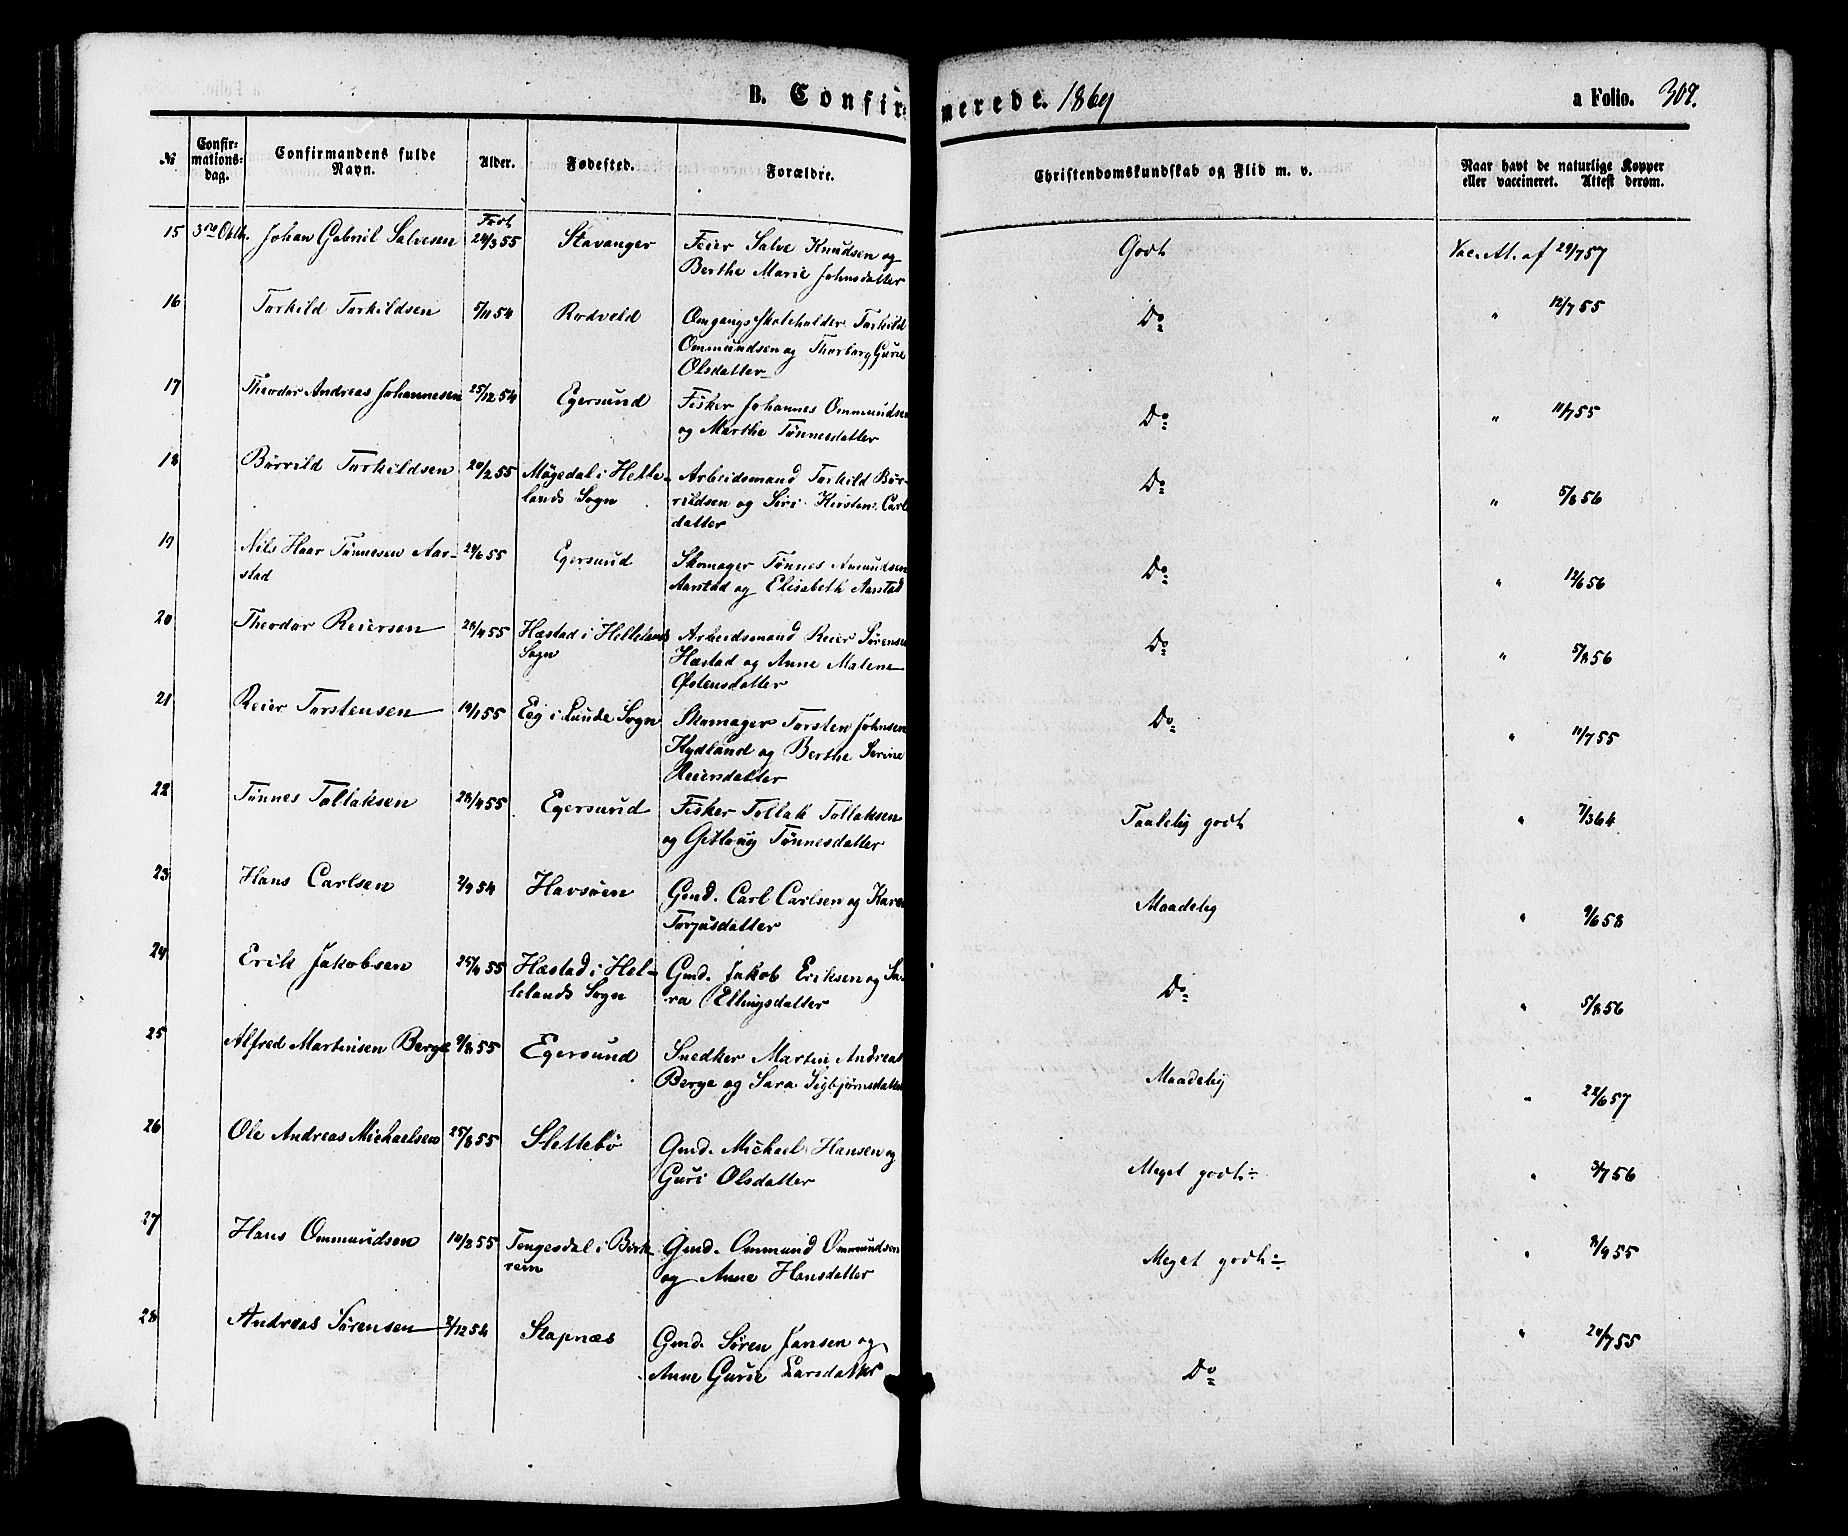 B. Confirmerede. 1869
a Folio. 307.
№
Confir-
mations-
dag.
Confirmandens fulde
Navn.
Alder.
Fødested.
Forældre.
Christendomskundskab og Flid m. v.
Naar havt de naturlige Kopper
eller vaccineret. Attest derom.
15 3die Octb. Johan Gabriel Salvesen Født 24/3 55 Stavanger Feier Salve Knudsen og Godt Vac. At. af 29/7 57
Berthe Marie Johnsdatter
16 Torkild Torkildsen 5/11 54 Rodveld Omgangsskoleholder Torkild Do " 12/7 55
Ommundsen og Thorborg Gurie
Olsdatter
17 Theodor Andreas Johannesen 25/12 54 Egersund Fisker Johannes Ommundsen Do " 11/7 55
og Marthe Tönnesdatter
18 Börrild Torkildsen 20/2 55 Mögedal i Helle- Arbeidsmand Torkild Bör- Do " 5/8 56
lands Sogn rildsen og Siri Kirstine Carls
datter
19 Nils Haar Tönnesen Aar- 29/6 55 Egersund Skomager Tönnes Amundsen Do " 12/6 56
stad Aarstad og Elisabeth Aarstad
20 Theodor Reiersen 28/4 55 Hæstad i Hellelands Arbeidsmand Reier Sörensen Do " 5/8 56
Sogn Hæstad og Anne Malene
Östensdatter
21 Reier Torstensen 19/1 55 Eeg i Lunde Sogn Skomager Torsten Johnsen Do " 11/7 55
Kydland og Berthe Serine
Reiersdatter
22 Tönnes Tollaksen 28/4 55 Egersund Fisker Tollak Tollaksen Taalelig godt " 7/3 64
og Gitlaug Tönnesdatter
23 Hans Carlsen 2/9 54 Havsöen Gmd. Carl Carlsen og Karen Maadelig " 9/6 58
Torjusdatter
24 Erik Jakobsen 25/4 55 Hæstad i Hel- Gmd. Jakob Eriksen og Sa- Do " 5/8 56
lelands Sogn ra Ellingsdatter
25 Alfred Martinsen Berge 9/8 55 Egersund Snedker Martin Andreas Maadelig " 22/6 57
Berge og Sara Sigbjörnsdatter
26 Ole Andreas Michaelsen 25/8 55 Slettebö Gmd. Michael Hansen og Meget godt " 3/7 56
Guri Olsdatter
27 Hans Ommundsen 10/2 55 Tengesdal i Birk- Gmd. Ommund Ommundsen Meget godt " 8/9 55
rem og Anne Hansdatter
28 Andreas Sörensen 8/12 54 Stapnæs Gmd. Sören Jansen og Do " 20/7 55
Anne Gurie Larsdatter